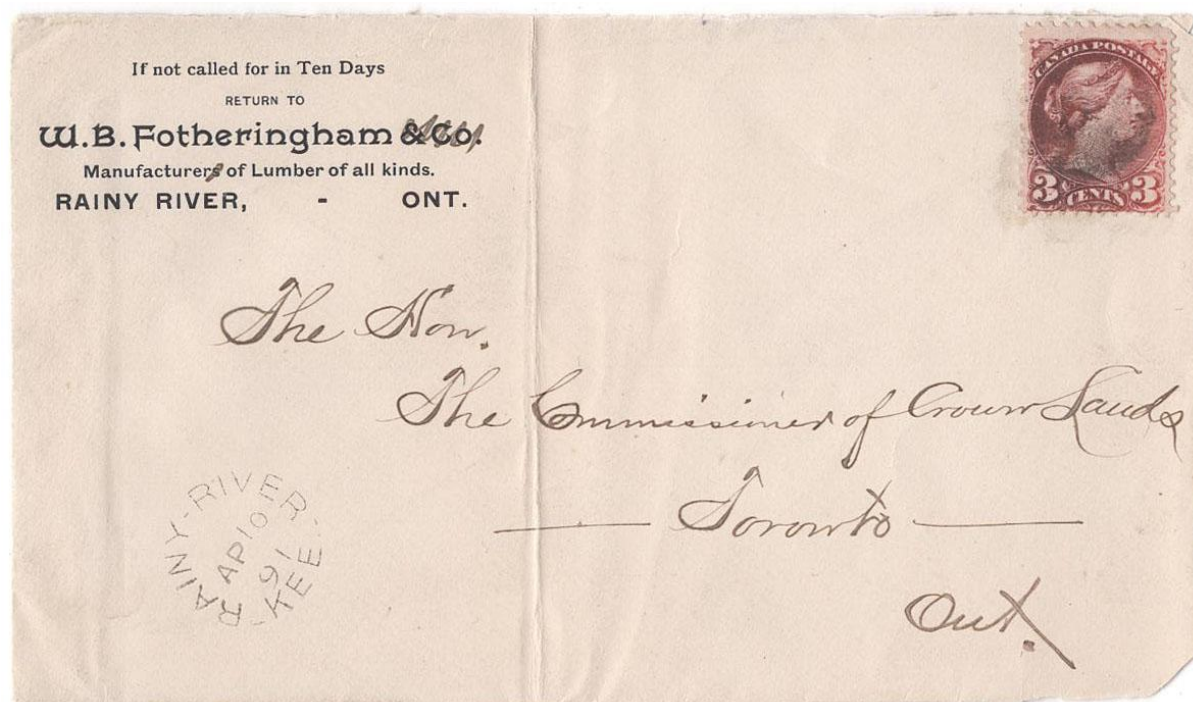 If not called for in Ten Days
RETURN TO
W.B. Fotheringham & Co.
Manufacturers of Lumber of all kinds.
RAINY RIVER, - ONT.
CANADA POSTAGE
3 CENTS 3
The Hon.
The Commissioner of Crown Lands
Toronto
Ont.
RAINY-RIVER-
AP 10
91
KEE